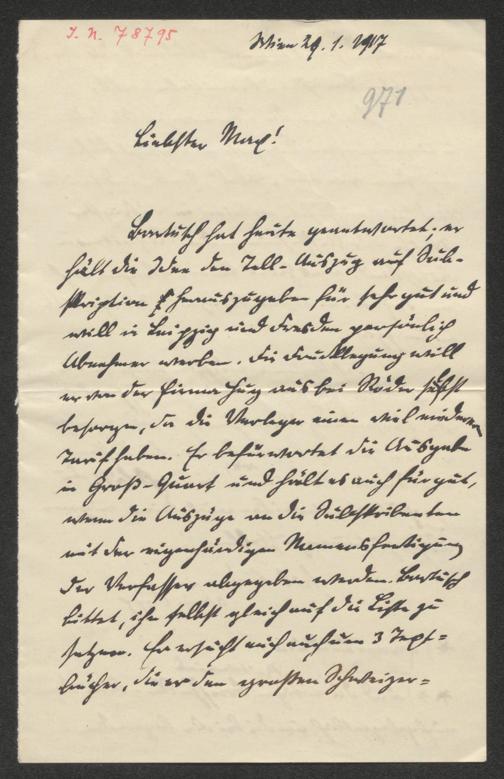 I. N. 78795
Wien 29. 1. 1917
971
Liebster Max!
Bartusch hat heute geantwortet; er
hält die Idee den Tell-Auszug auf Sub-
skription herauszugeben für sehr gut und
will in Leipzig und Dresden persönlich
Abnehmer werben. Die Drucklegung will
er von der Firma Hug aus bei Röder selbst
besorgen, da die Verleger einen viel niederen
Tarif haben. Er befürwortet die Ausgabe
in Groß-Quart und hält es auch für gut,
wenn die Auszüge an die Subskribenten
mit der eigenhändigen Namensfertigung
der Verfasser abgegeben werden. Bartusch
bittet, ihn selbst gleich auf die Liste zu
setzen. Er ersucht auch um 3 Text-
bücher, die er den großen Schweizer-